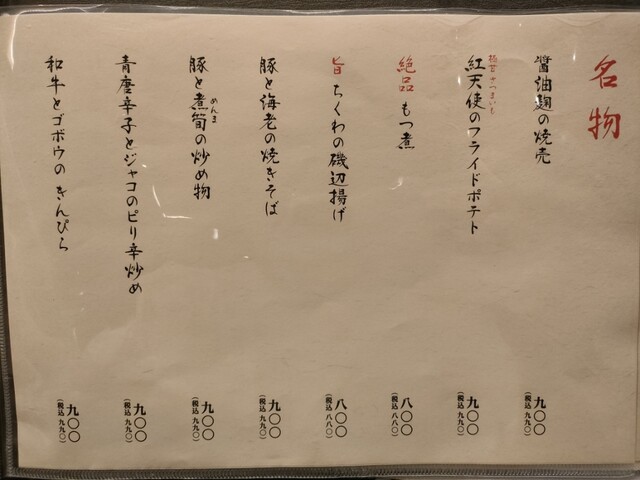 名物
醤油麹の焼売
九〇〇
(税込 九九〇)
極甘さつまいも
紅天使のフライドポテト
九〇〇
(税込 九九〇)
絶品 もつ煮
八〇〇
(税込 八八〇)
旨 ちくわの磯辺揚げ
八〇〇
(税込 八八〇)
豚と海老の焼きそば
九〇〇
(税込 九九〇)
めんま
豚と煮筍の炒め物
九〇〇
(税込 九九〇)
青唐辛子とジャコのピリ辛炒め
九〇〇
(税込 九九〇)
和牛とゴボウのきんぴら
九〇〇
(税込 九九〇)